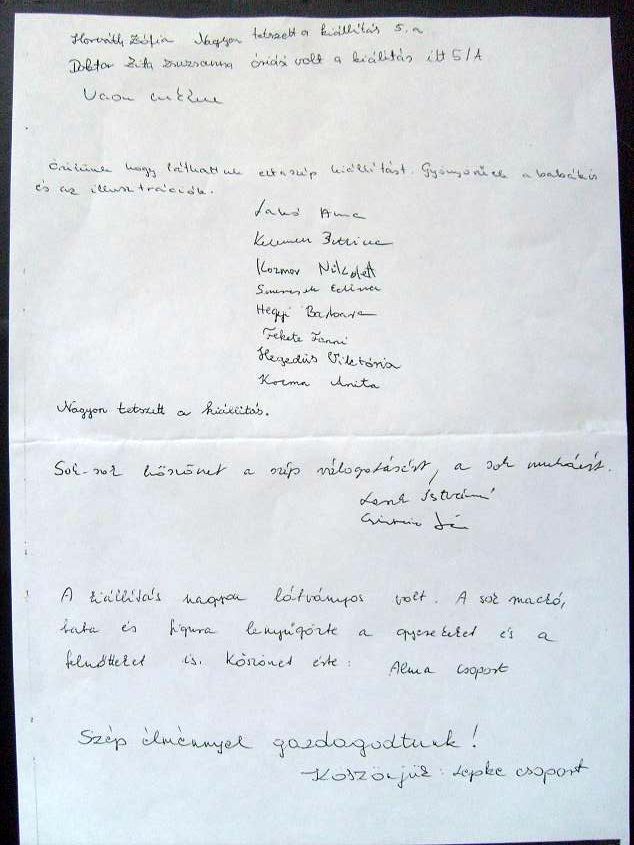 Horváth Zófia Nagyon tetszett a kiállítás 5.a
Doktor Zita Zsuzsanna óriási volt a kiálitás itt 5/A
Örülünk hogy láthattuk ezt a szép kiállítást. Gyönyörűek a babák is
és az illusztrációk.
Lakó Anna
Kelemen Bettina
Kozmor Nikolett
Edina
Hegyi Barbara
Fekete Fanni
Hegedüs Viktória
Kozma Anita
Nagyon tetszett a kiállítás.
Sok-sok köszönet a szép válogatásért, a sok munkáért.
Istvánné
A kiállítás nagyon látványos volt. A sok mackó,
baba és figura lenyűgözte a gyerekeket és a
felnőtteket is. Köszönet érte: Alma csoport
Szép élménnyel gazdagodtunk!
Köszönjük: Lepke csoport